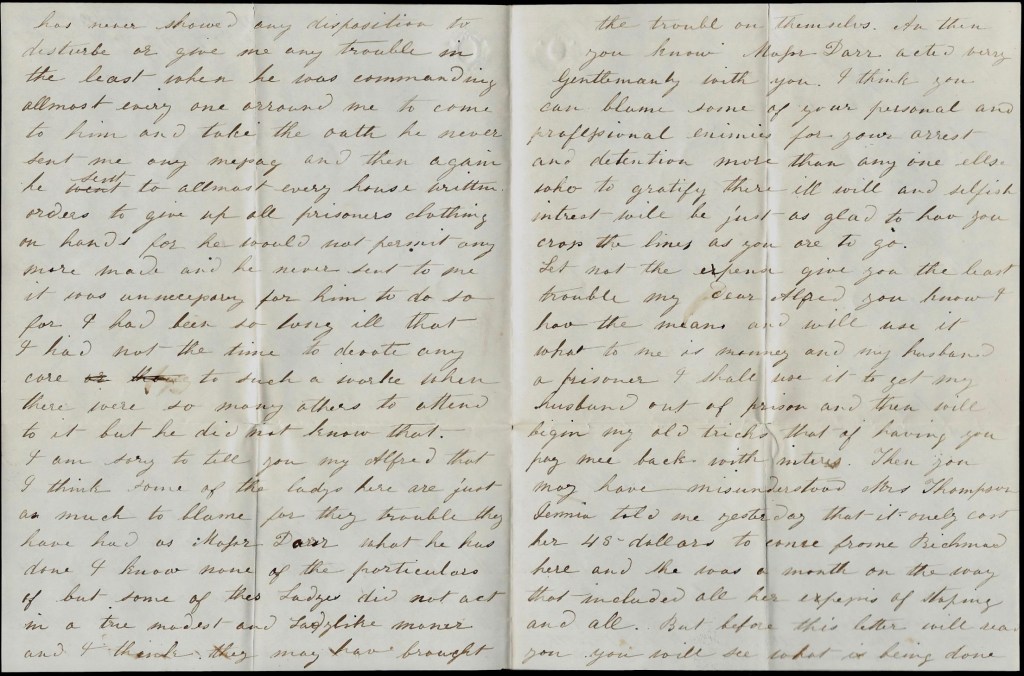 has never showed any disposition to
disturbe or give me any trouble in
the least when he was commanding
allmost every one arround me to come
to him and take the oath he never
sent me any messag and then again
he sent to allmost every house written
orders to give up all prisoners clothing
on hands for he would not permit any
more made and he never sent to me
it was unnecessary for him to do so
for I had been so long ill that
I had not the time to devote any
care to such a worke when
there were so many others to attend
to it but he did not know that.
I am sory to tell you my Alfred that
I think some of the ladys here are just
as much to blame for they trouble they
have had as Major Darr what he has
done I know none of the particulars
of but some of thes Ladyes did not act
in a true modest and Ladylike maner
and I think they may hav brought
the troubl on themselvs. An then
you know Major Darr acted verry
Gentlemanly with you. I think you
can blame some of your personal and
professional enimies for your arrest
and detention more than any one ellse
who to gratify there ill will and selfish
intrest will be just as glad to hav you
cross the lines as you are to go.
Let not the expense give you the least
trouble my dear Alfred you know I
hav the means and will use it
what to me is money and my husband
a prisoner I shall use it to get my
husband out of prison and then will
begin my old tricks that of having you
pay mee back with interes. Then you
may have misunderstood Mrs Thompson
Jennia told me yesterday that it onely cost
her 45 dollars to come frome Richmad
here and she was a month on the way
that included all her expenis of stoping
and all. But before this letter will rea
you you will see what is being done